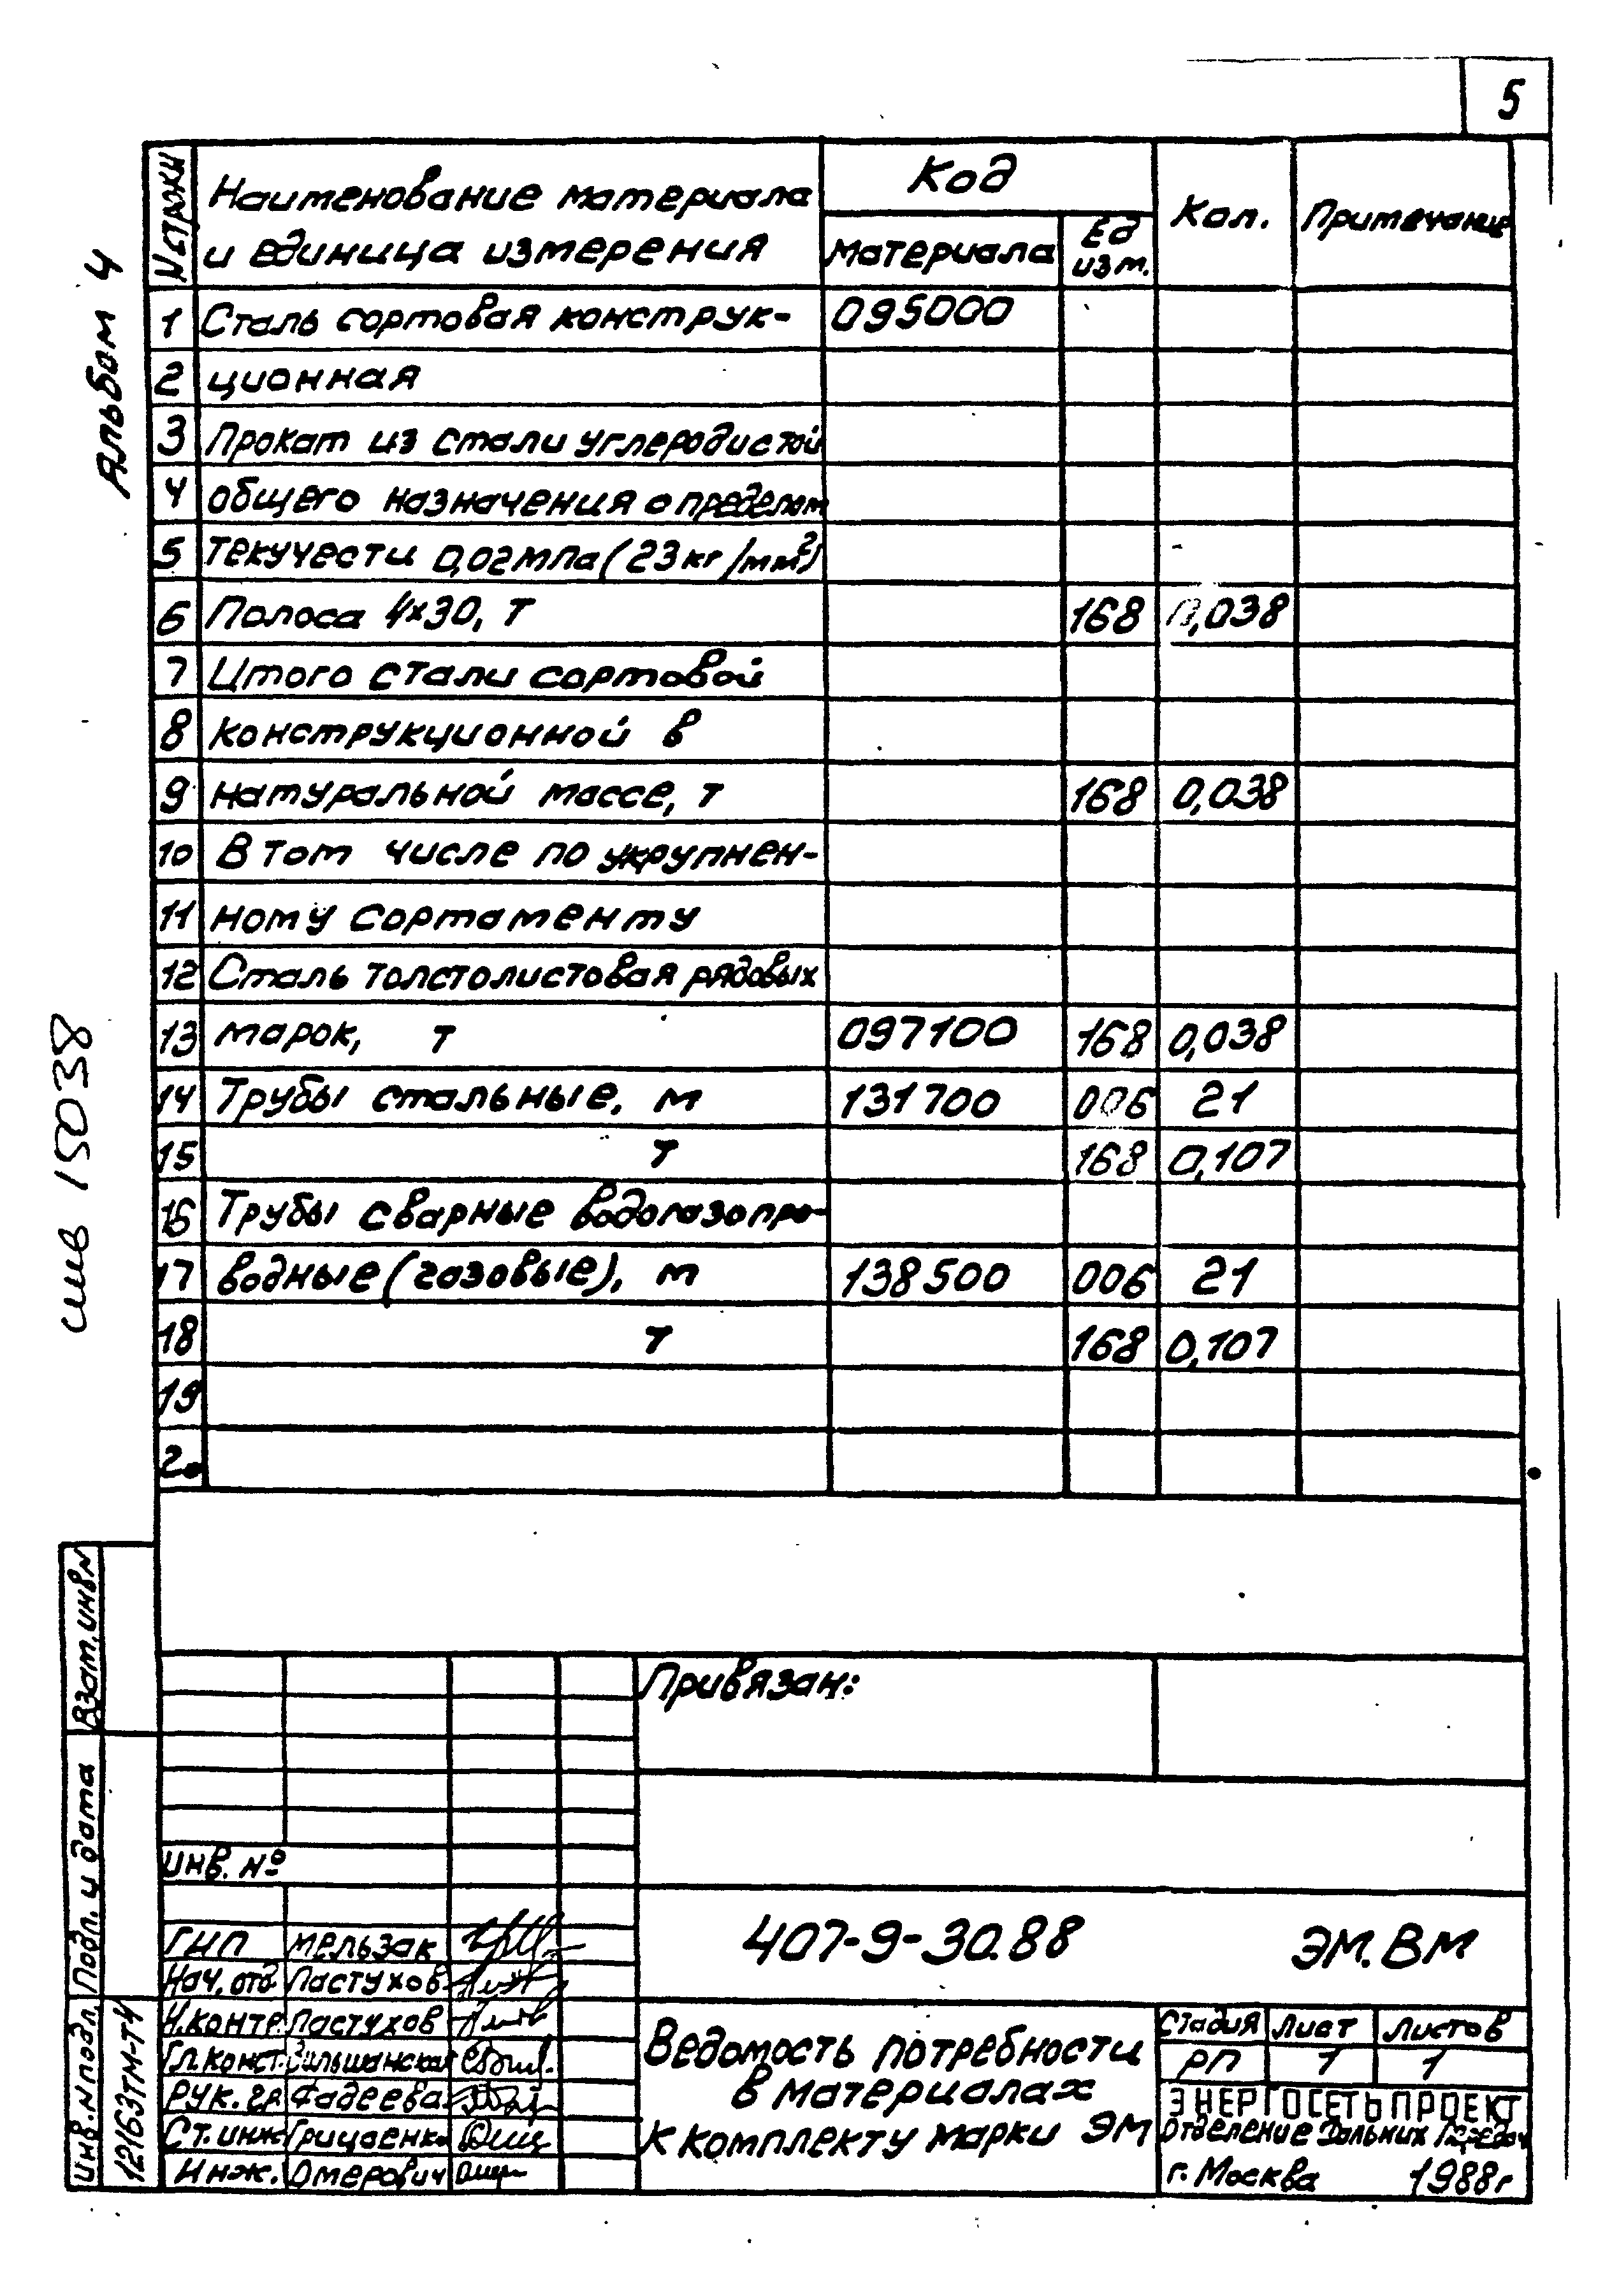 5
Альбом 4
N строки
Наименование материала
и единица измерения
Код
Материала
Ед
изм.
Кол.
Примечание
1 Сталь сортовая конструк- 095000
2 ционная
3 Прокат из стали углеродистой
4 общего назначения с пределом
5 текучести 0,02мпа (23кг/мм²)
6 Полоса 4×30, т 168 0,038
7 Итого стали сортовой
8 конструкционной в
9 натуральной массе, т 168 0,038
10 В том числе по укрупнен-
11 ному сортаменту
12 Сталь толстолистовая рядовых
13 марок, т 097100 168 0,038
14 Трубы стальные, м 131700 006 21
15 т 168 0,107
16 Трубы сварные водогазопро-
17 водные (газовые), м 138500 006 21
18 т 168 0,107
19
20
15038
Взам. инв N
Подп. и дата
Инв. N подл.
12163тм-т4
Привязан:
инв. №
407-9-30.88 ЭМ.ВМ
ГИП Мельзак
Нач. отд Пастухов
Н.контр. Пастухов
Гл.конст. Зильшанская
Рук. гр Фадеева
Ст. инж Грицаенко
Инж. Омерович
Ведомость потребности
в материалах
к комплекту марки ЭМ
Стадия Лист Листов
РП 1 1
ЭНЕРГОСЕТЬПРОЕКТ
Отделение Дальних Передач
г. Москва 1988г